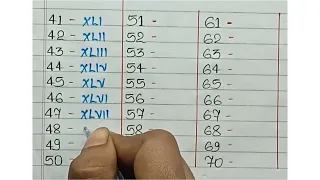 41 - XLI 51 - 61 -
42 - XLII 52 - 62 -
43 - XLIII 53 - 63 -
44 - XLIV 54 - 64 -
45 - XLV 55 - 65 -
46 - XLVI 56 - 66 -
47 - XLVII 57 - 67 -
48 - 58 - 68 -
49 - 69 -
50 - 70 -